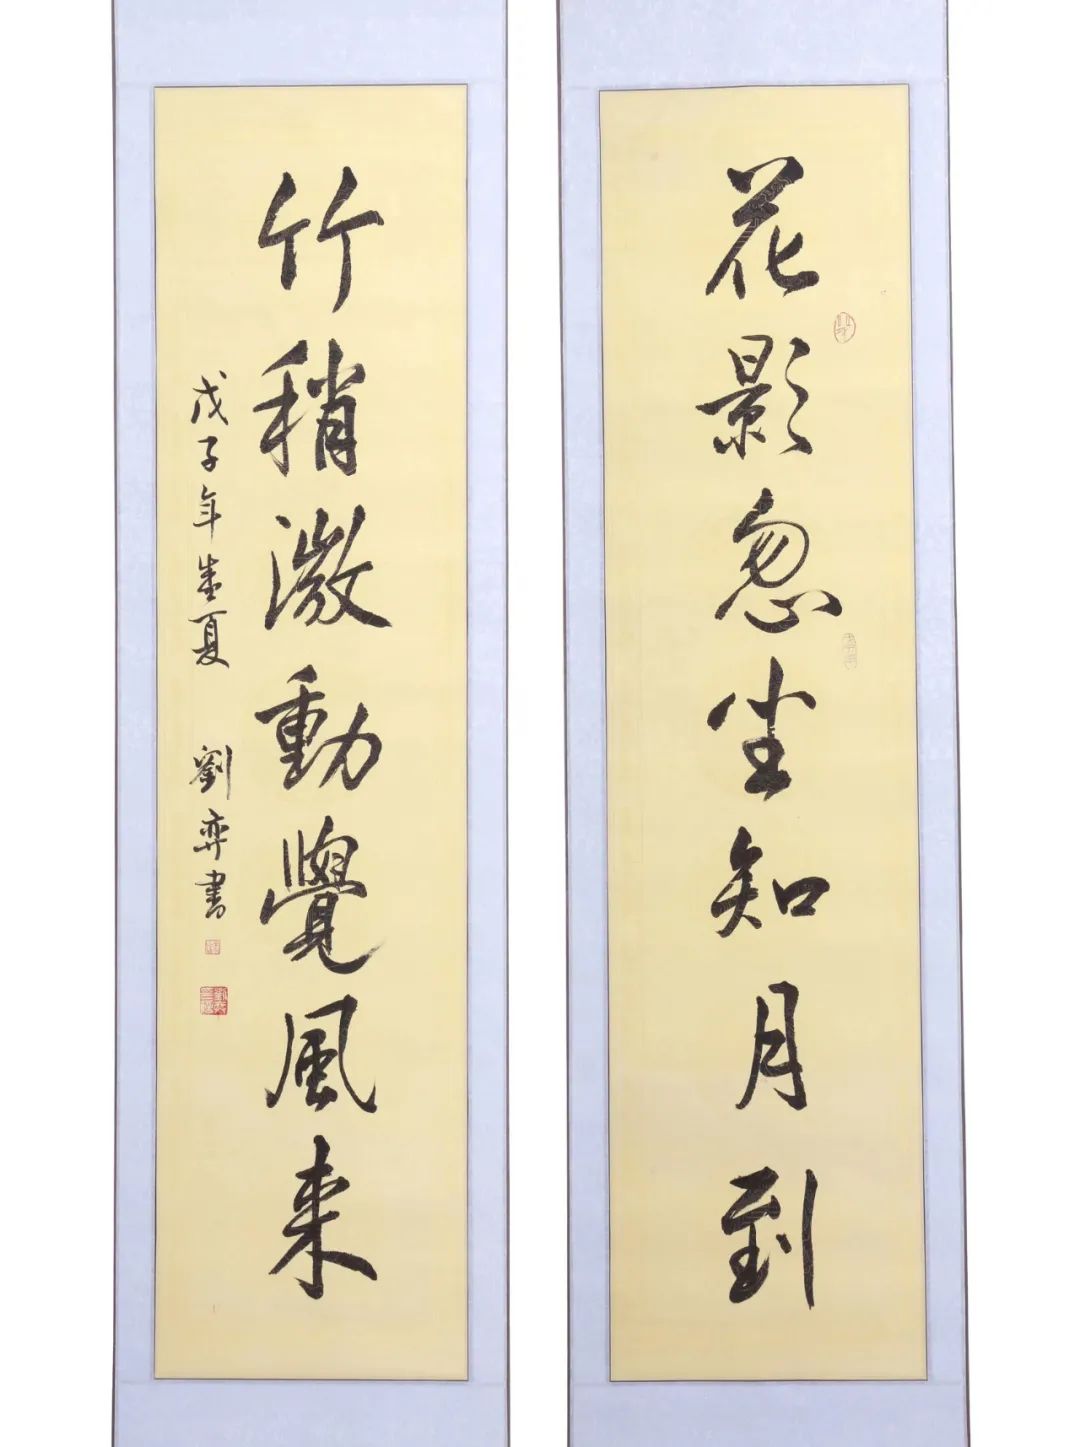 花影忽生知月到
竹稍微動覺風来
戊子年盛夏 劉弈書